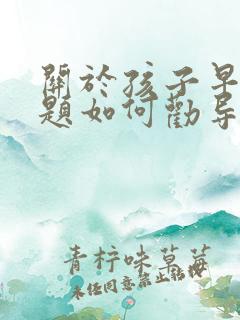 關於孩子早
題如何勸导
青柠味草莓
未经同意禁止转载